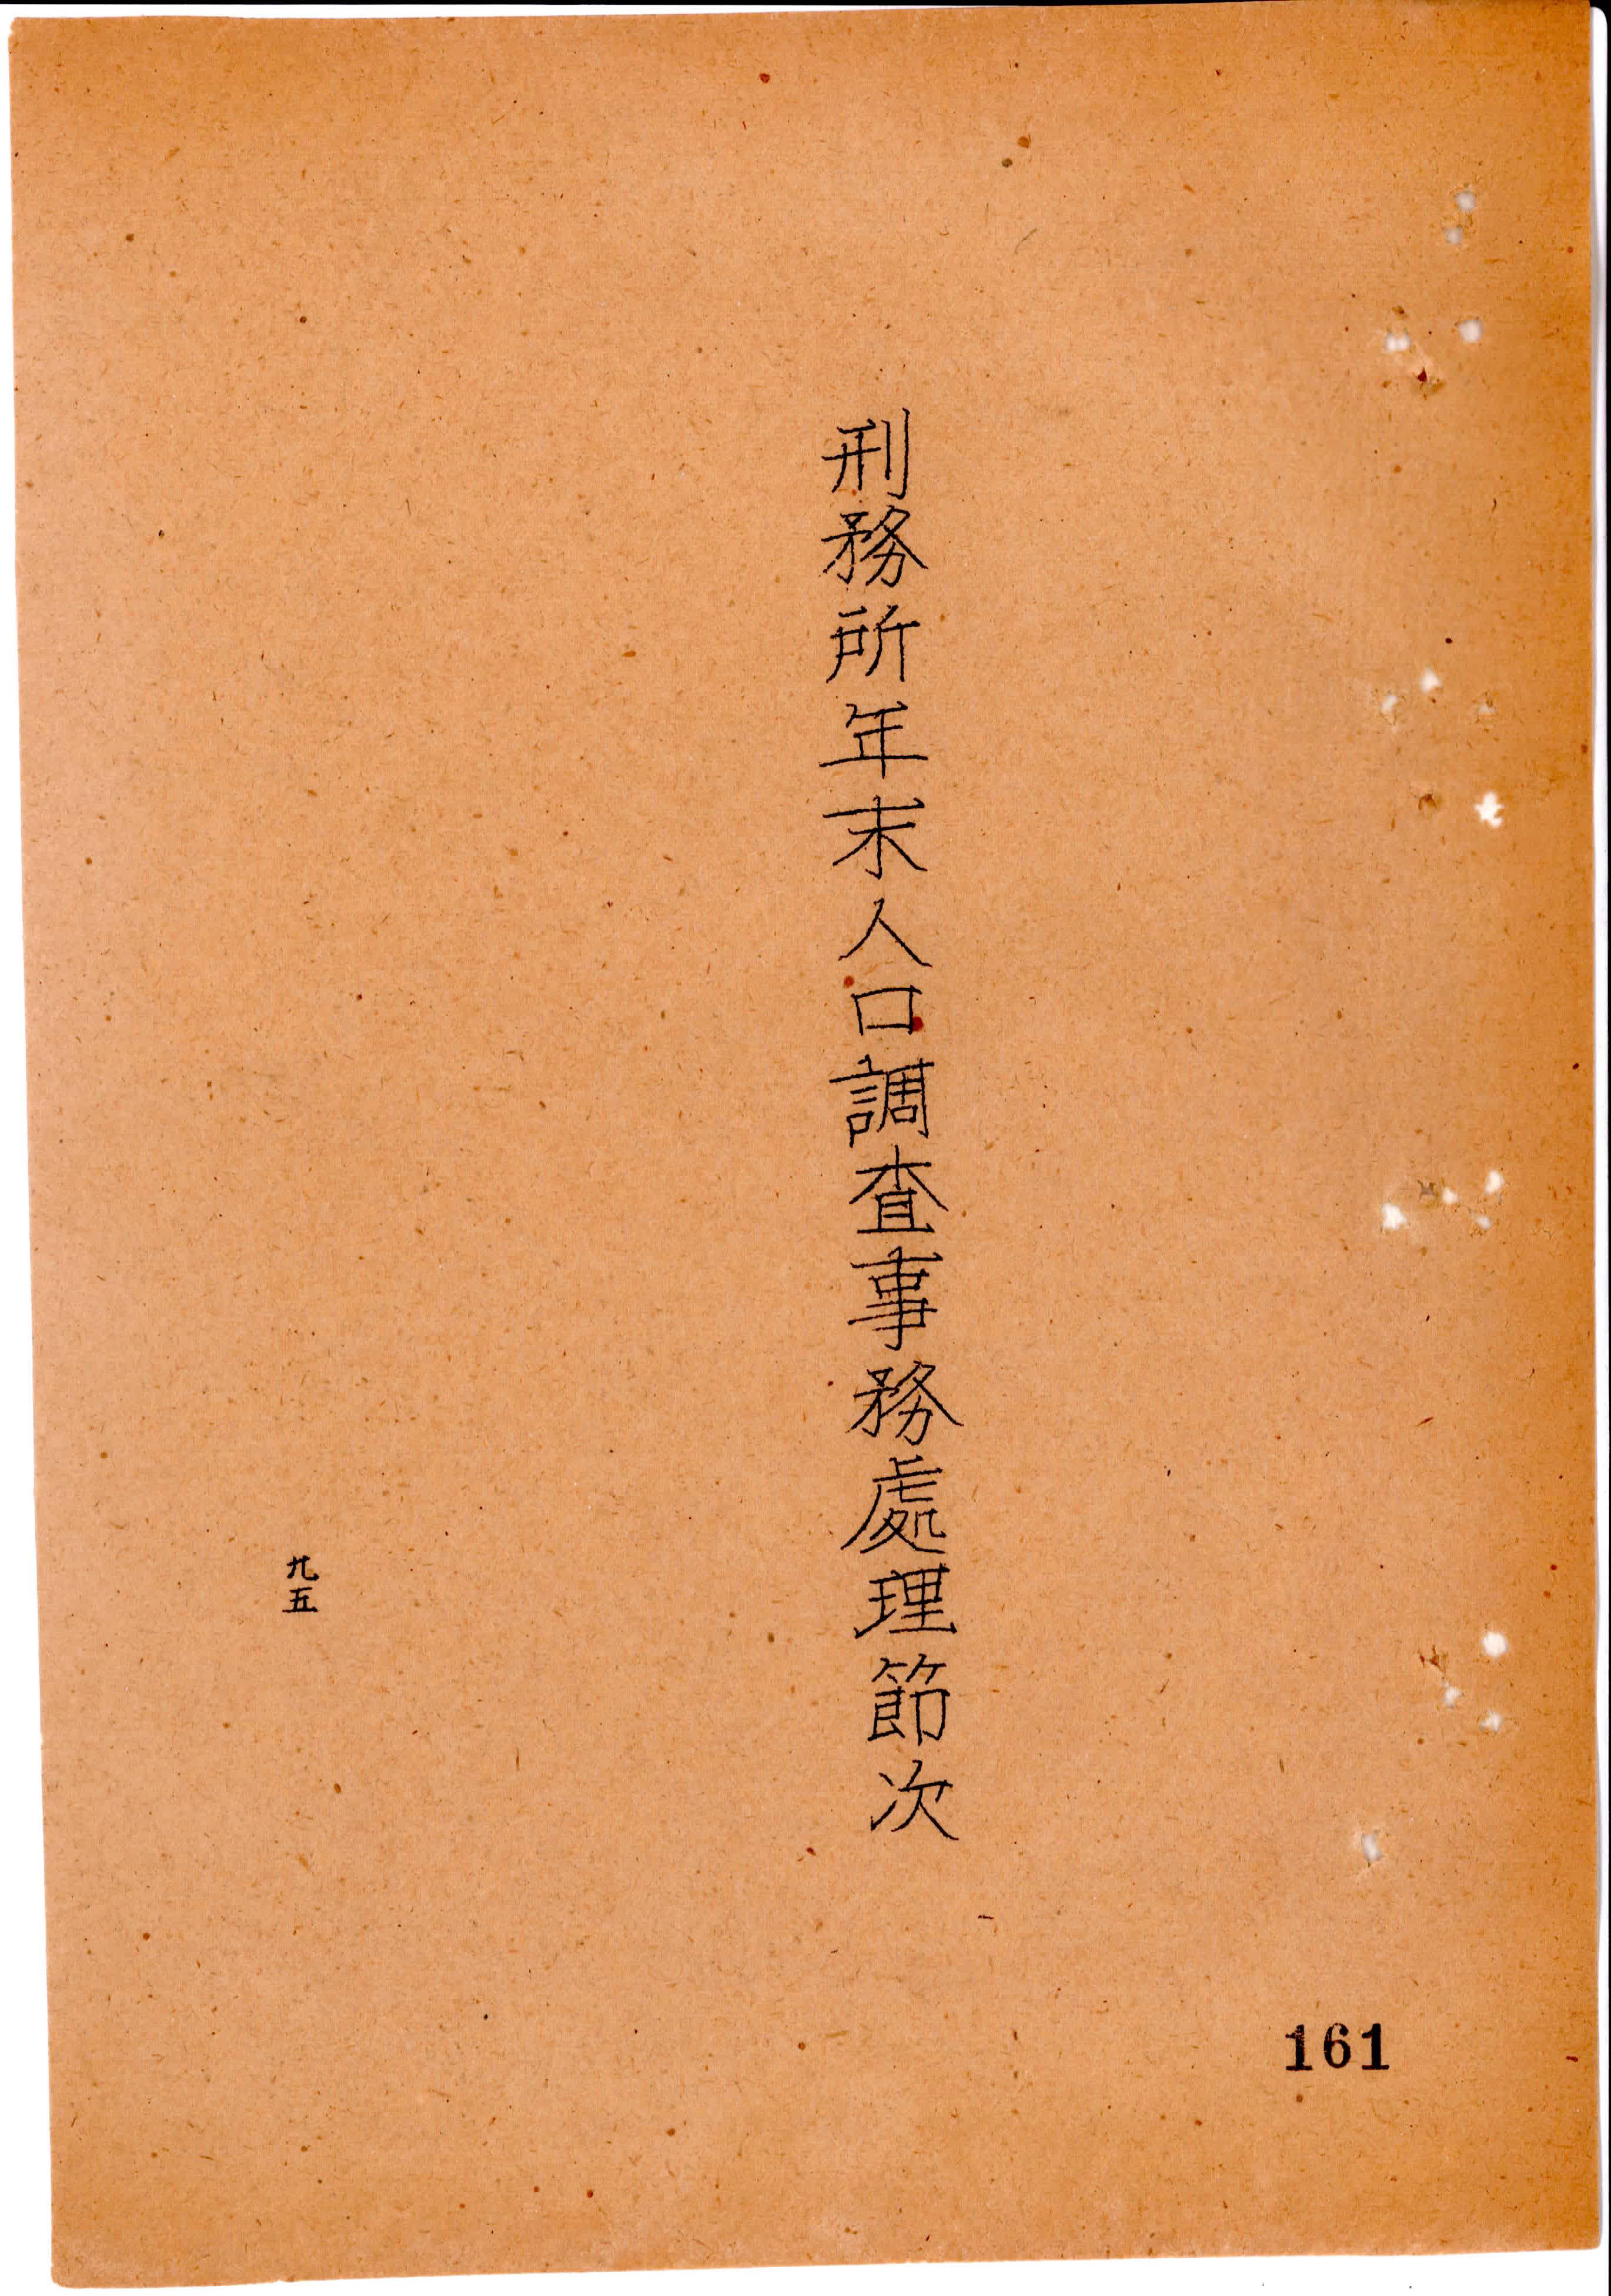 刑務所年末人口調查事務處理節次
九五
161